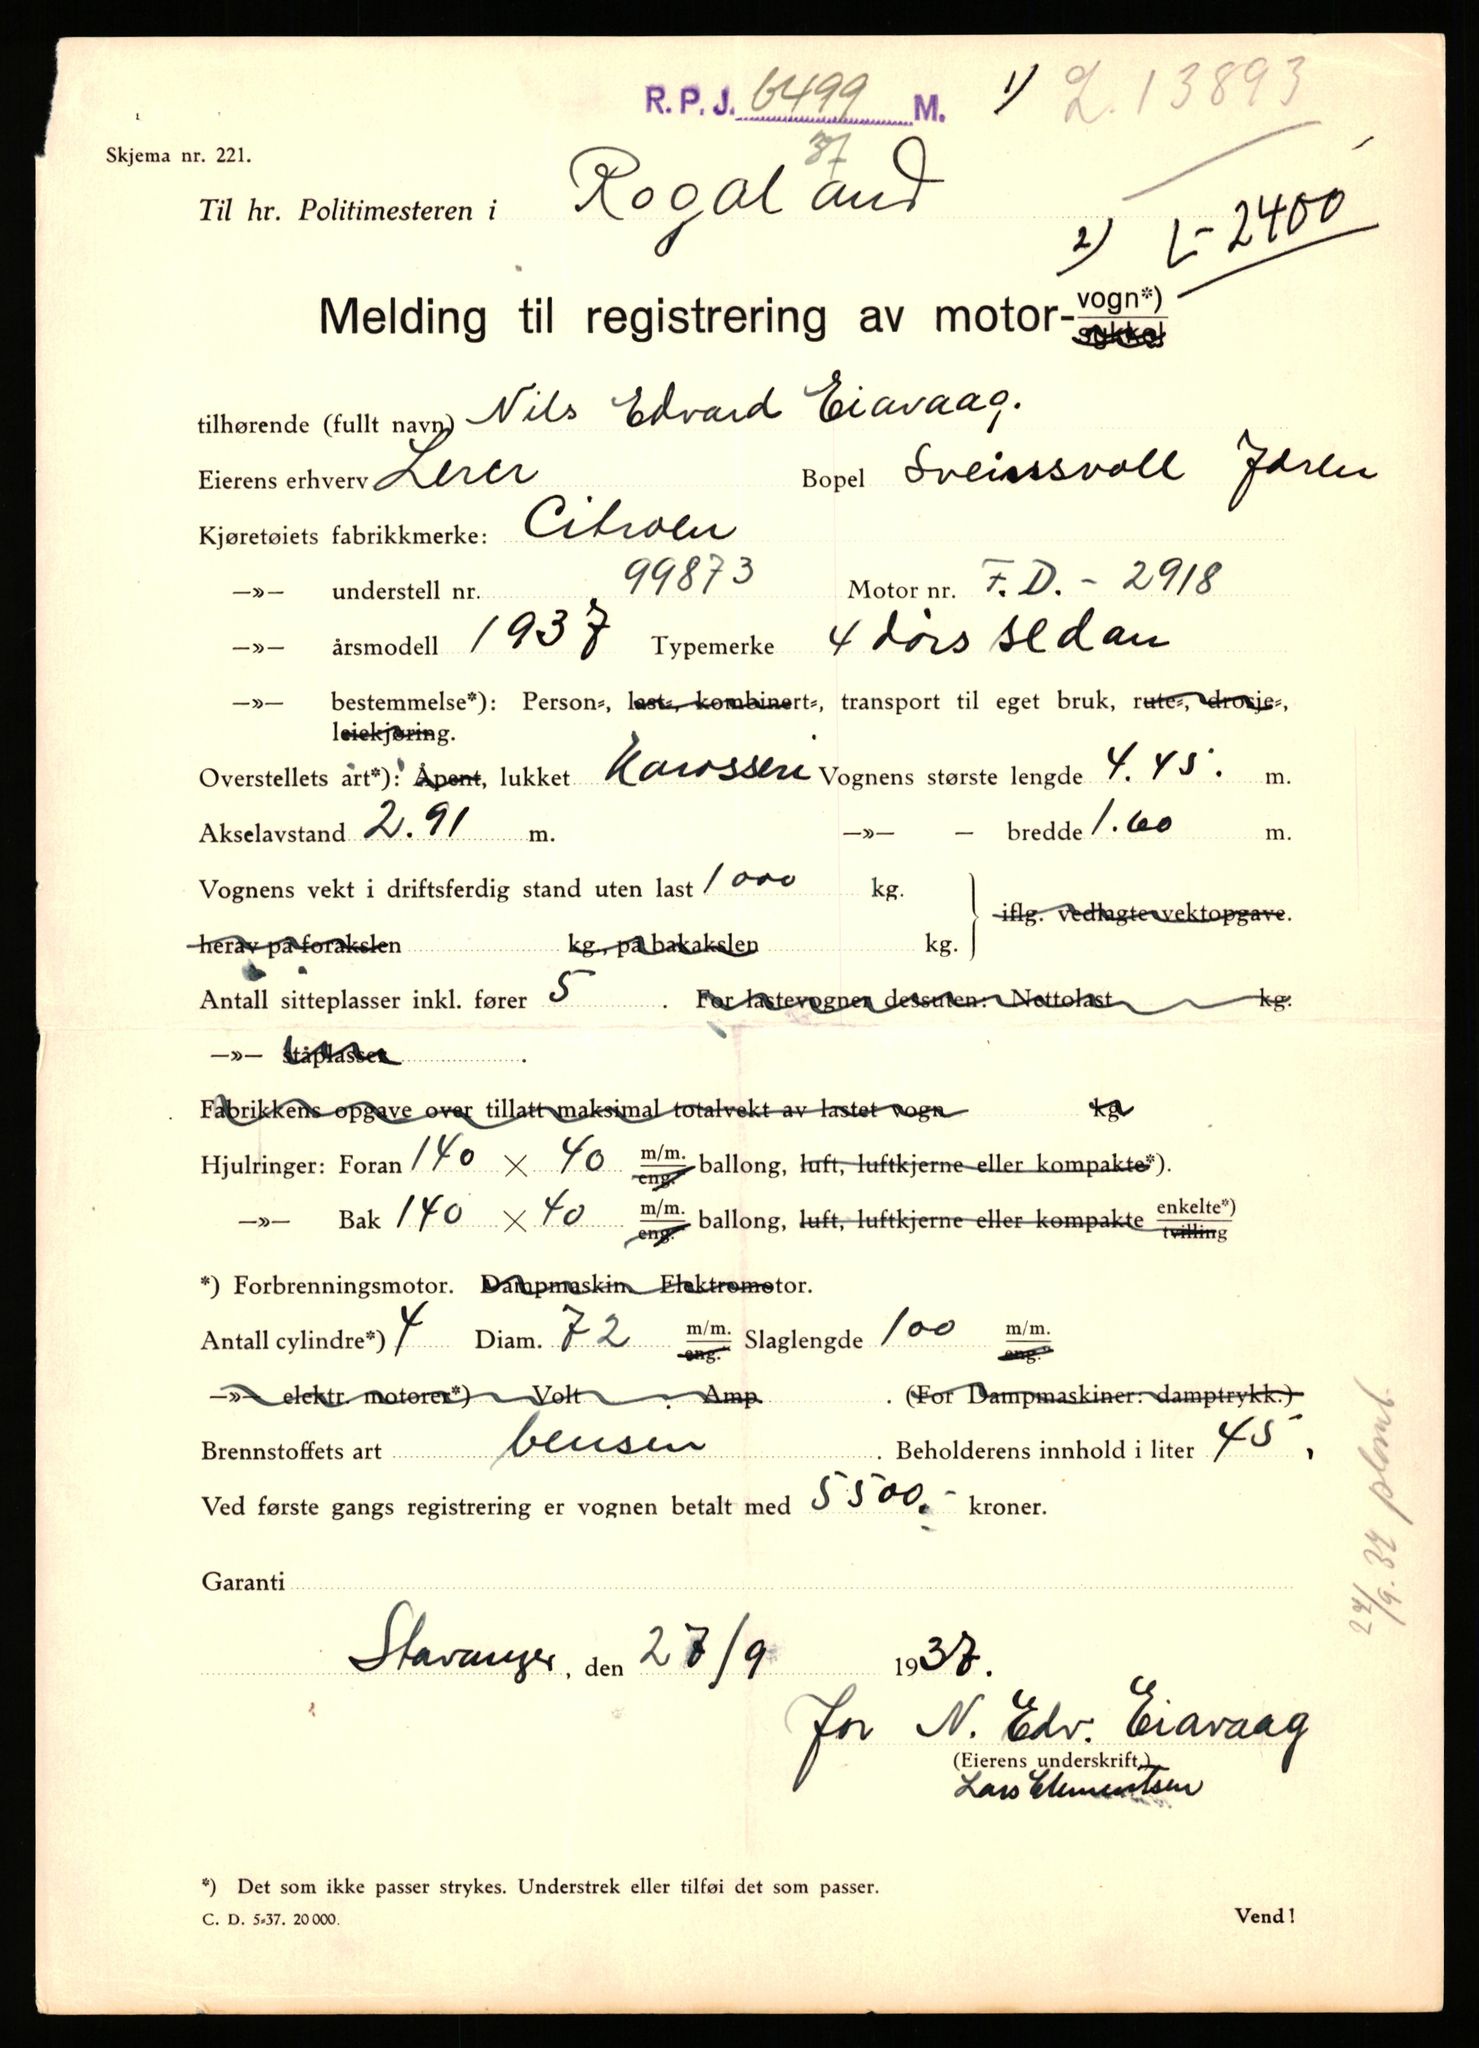 R. P. J. 6499 M. 1) L. 13893
37
Skjema nr. 221.
Til hr. Politimesteren i Rogaland
2) L-2400
Melding til registrering av motor-vogn*)
sykkel
tilhørende (fullt navn) Nils Edvard Eiavaag.
Eierens erhverv Lerer Bopel Sveinssvoll Jæren
Kjøretøiets fabrikkmerke: Citroen
—»— understell nr. 99873 Motor nr. F.D. - 2918
—»— årsmodell 1937 Typemerke 4 dørs sedan
—»— bestemmelse*): Person-, last-, kombinert-, transport til eget bruk, rute-, drosje-,
leiekjøring.
Overstellets art*): Åpent, lukket Karosseri Vognens største lengde 4.45. m.
Akselavstand 2.91 m. —»— — bredde 1.60 m.
Vognens vekt i driftsferdig stand uten last 1000 kg.
iflg. vedlagte vektopgave.
herav på forakslen kg., på bakakslen kg.
Antall sitteplasser inkl. fører 5 . For lastevogner dessuten: Nettolast kg.
—»— ståplasser .
Fabrikkens opgave over tillatt maksimal totalvekt av lastet vogn kg
Hjulringer: Foran 140 × 40 m/m. eng." ballong, luft, luftkjerne eller kompakte*).
—»— Bak 140 × 40 m/m. eng." ballong, luft, luftkjerne eller kompakte enkelte*) tvilling
*) Forbrenningsmotor. Dampmaskin. Elektromotor.
Antall cylindre*) 4 Diam. 72 m/m. eng." Slaglengde 100 m/m. eng."
—»— elektr. motorer*) Volt . Amp. . (For Dampmaskiner: damptrykk.)
Brennstoffets art bensin . Beholderens innhold i liter 45.
Ved første gangs registrering er vognen betalt med 5500.- kroner.
27/9.37 plomb.
Garanti
Stavanger, den 27/9 1937.
for N. Edv. Eiavaag
(Eierens underskrift.)
Lars Clementsen
*) Det som ikke passer strykes. Understrek eller tilføi det som passer.
C. D. 5-37. 20 000.
Vend!